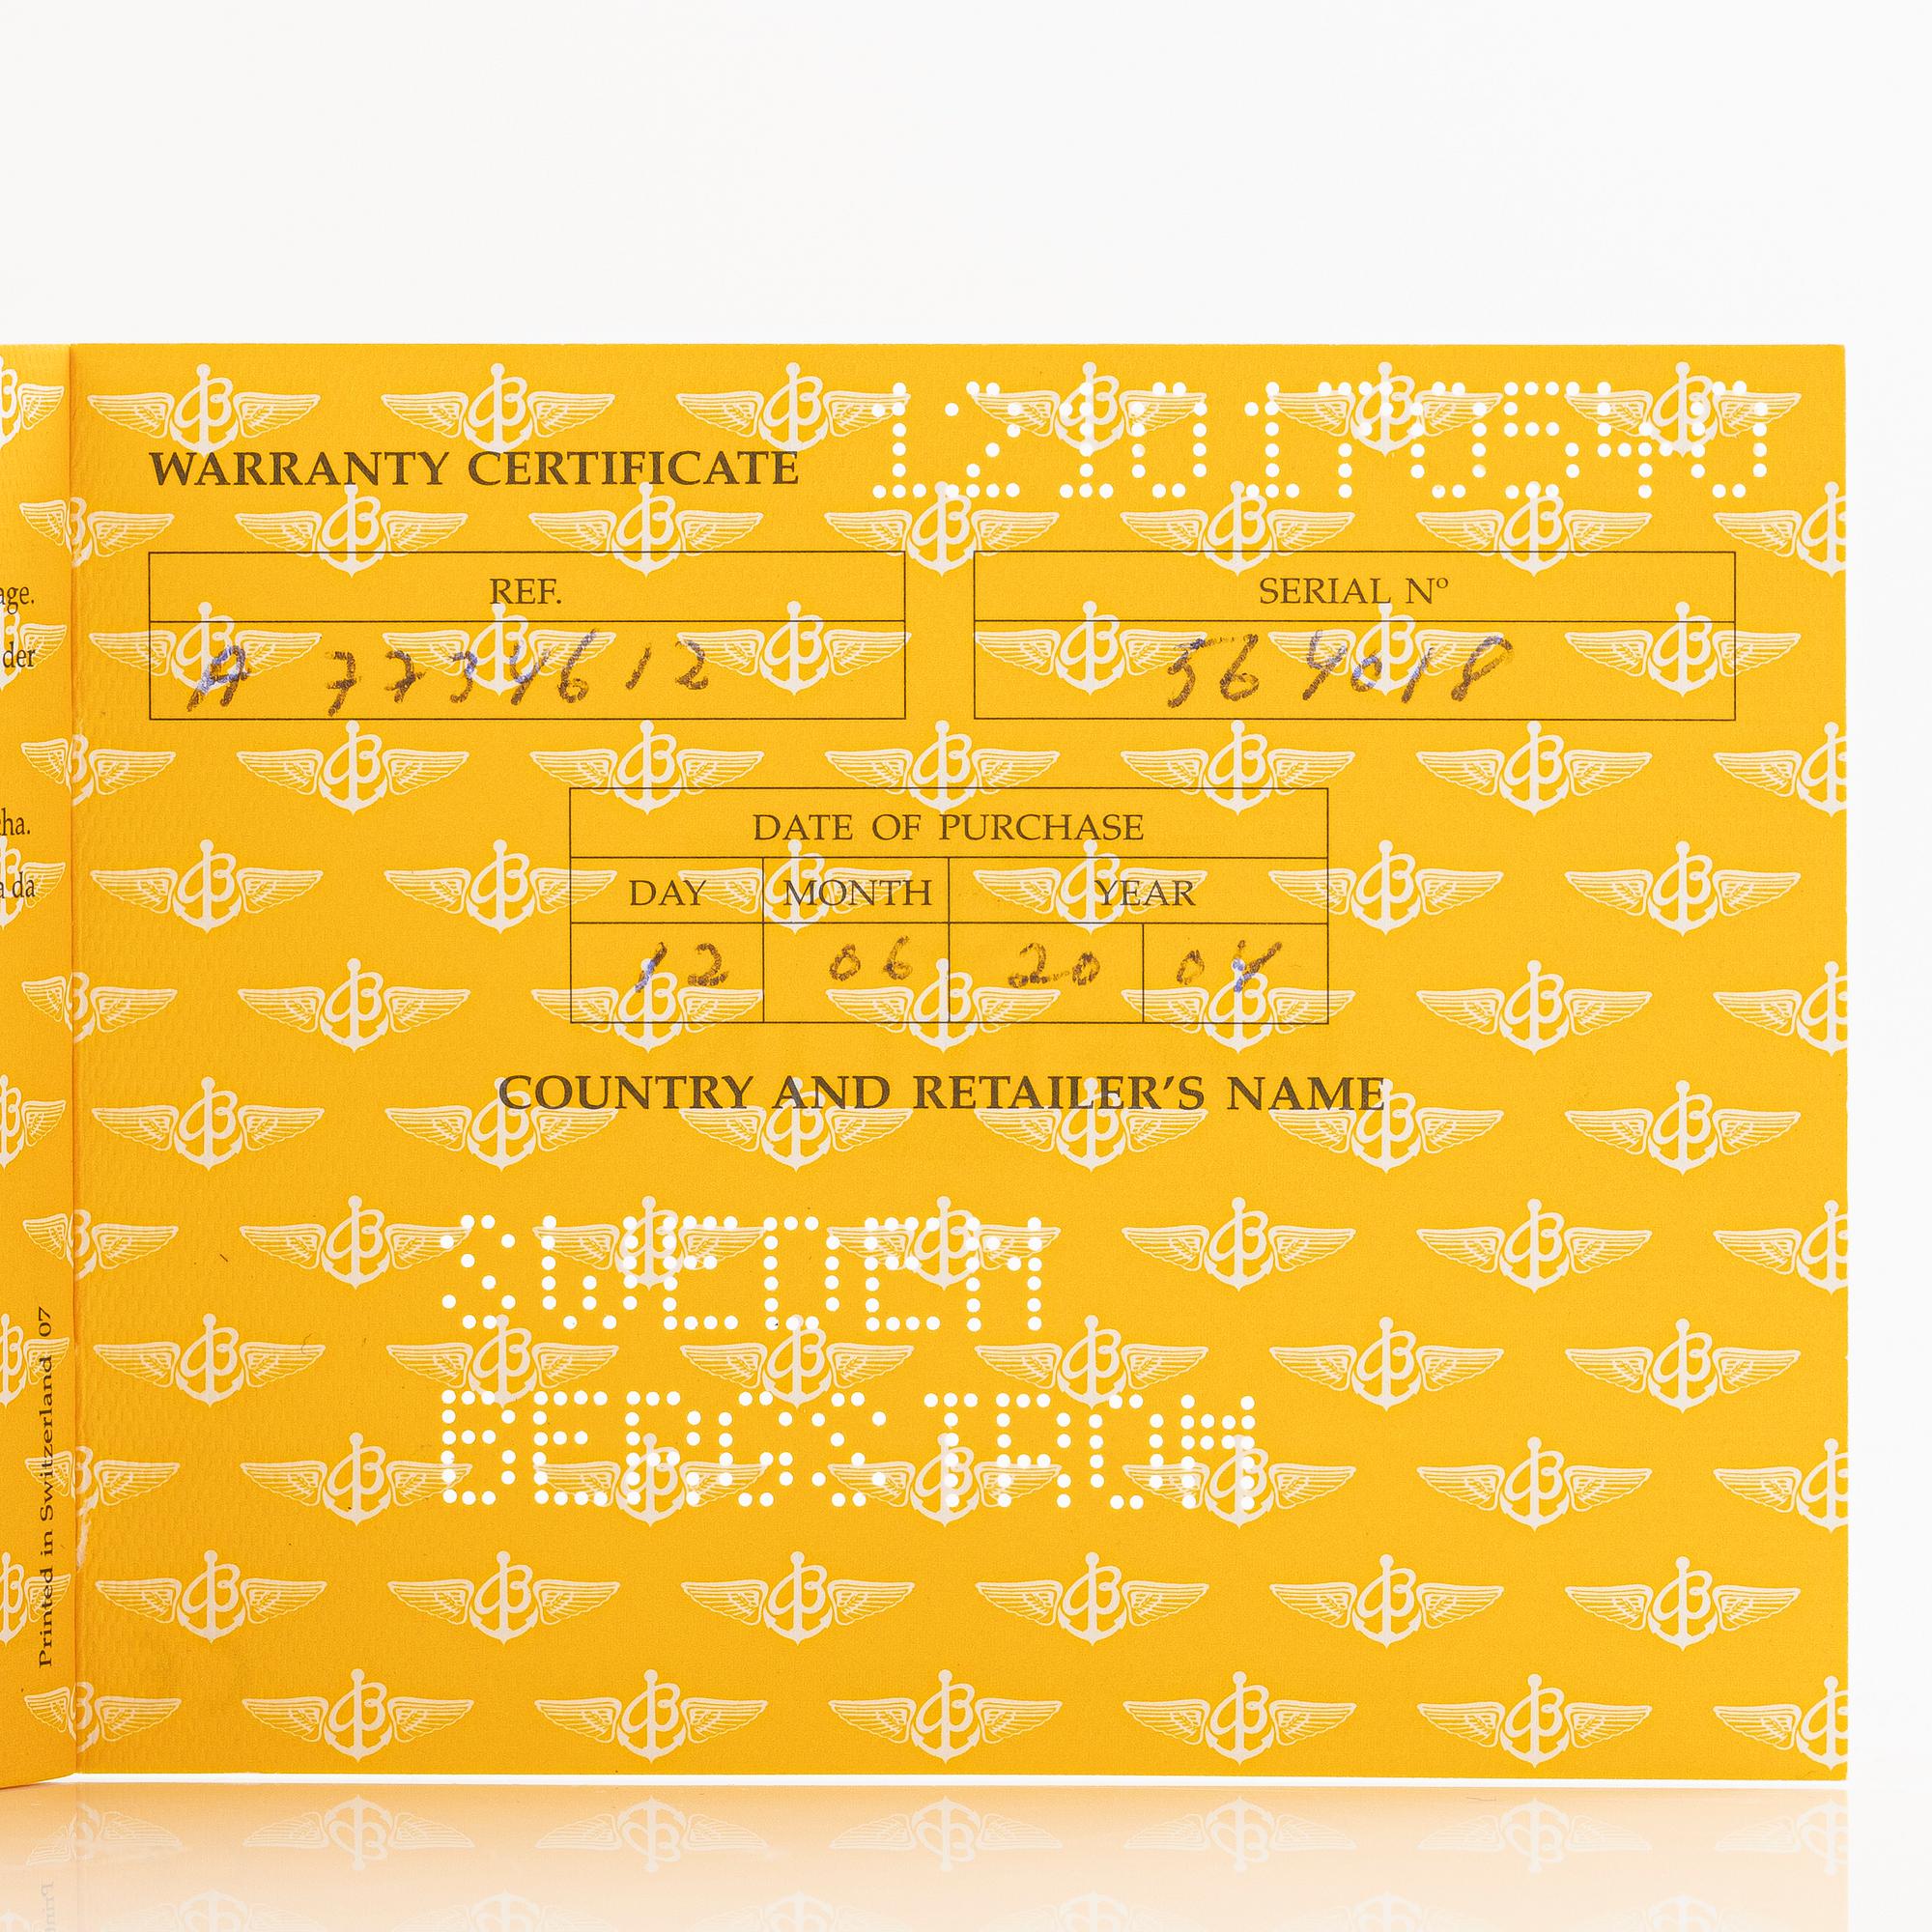 1210170540
WARRANTY CERTIFICATE
REF.
A 7734612
SERIAL Nº
564018
DATE OF PURCHASE
DAY MONTH YEAR
12 06 20 04
COUNTRY AND RETAILER'S NAME
SWEDEN
BERGSTROM
der
da
Printed in Switzerland 07